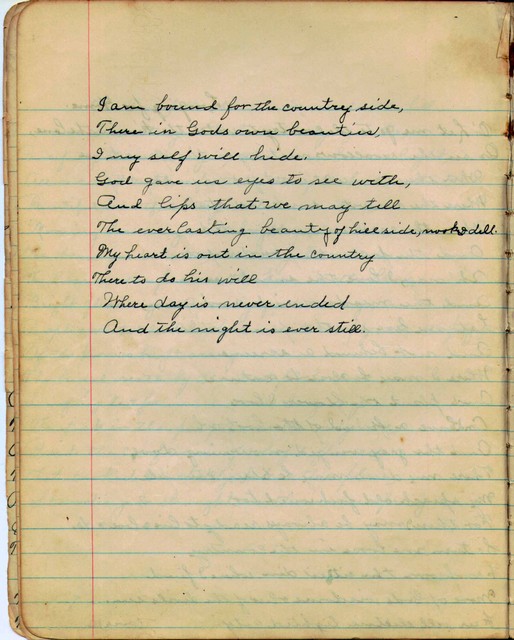 I am bound for the country side,
There in Gods own beauties,
I my self will hide.
God gave us eyes to see with,
And lips that we may tell
The everlasting beauty of hill side, nook & dell.
My heart is out in the country
There to do his will
Where day is never ended
And the night is ever still.